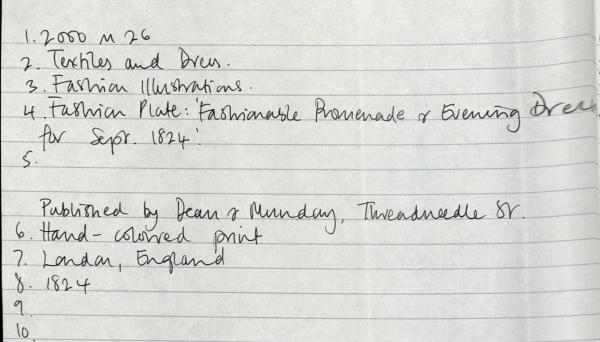 1. 2000 M 26
2. Textiles and Dress.
3. Fashion Illustrations.
4. Fashion Plate: 'Fashionable Promenade & Evening Dress
for Sept. 1824'.
5.
Published by Dean & Munday, Threadneedle St.
6. Hand-coloured print
7. London, England
8. 1824
9.
10